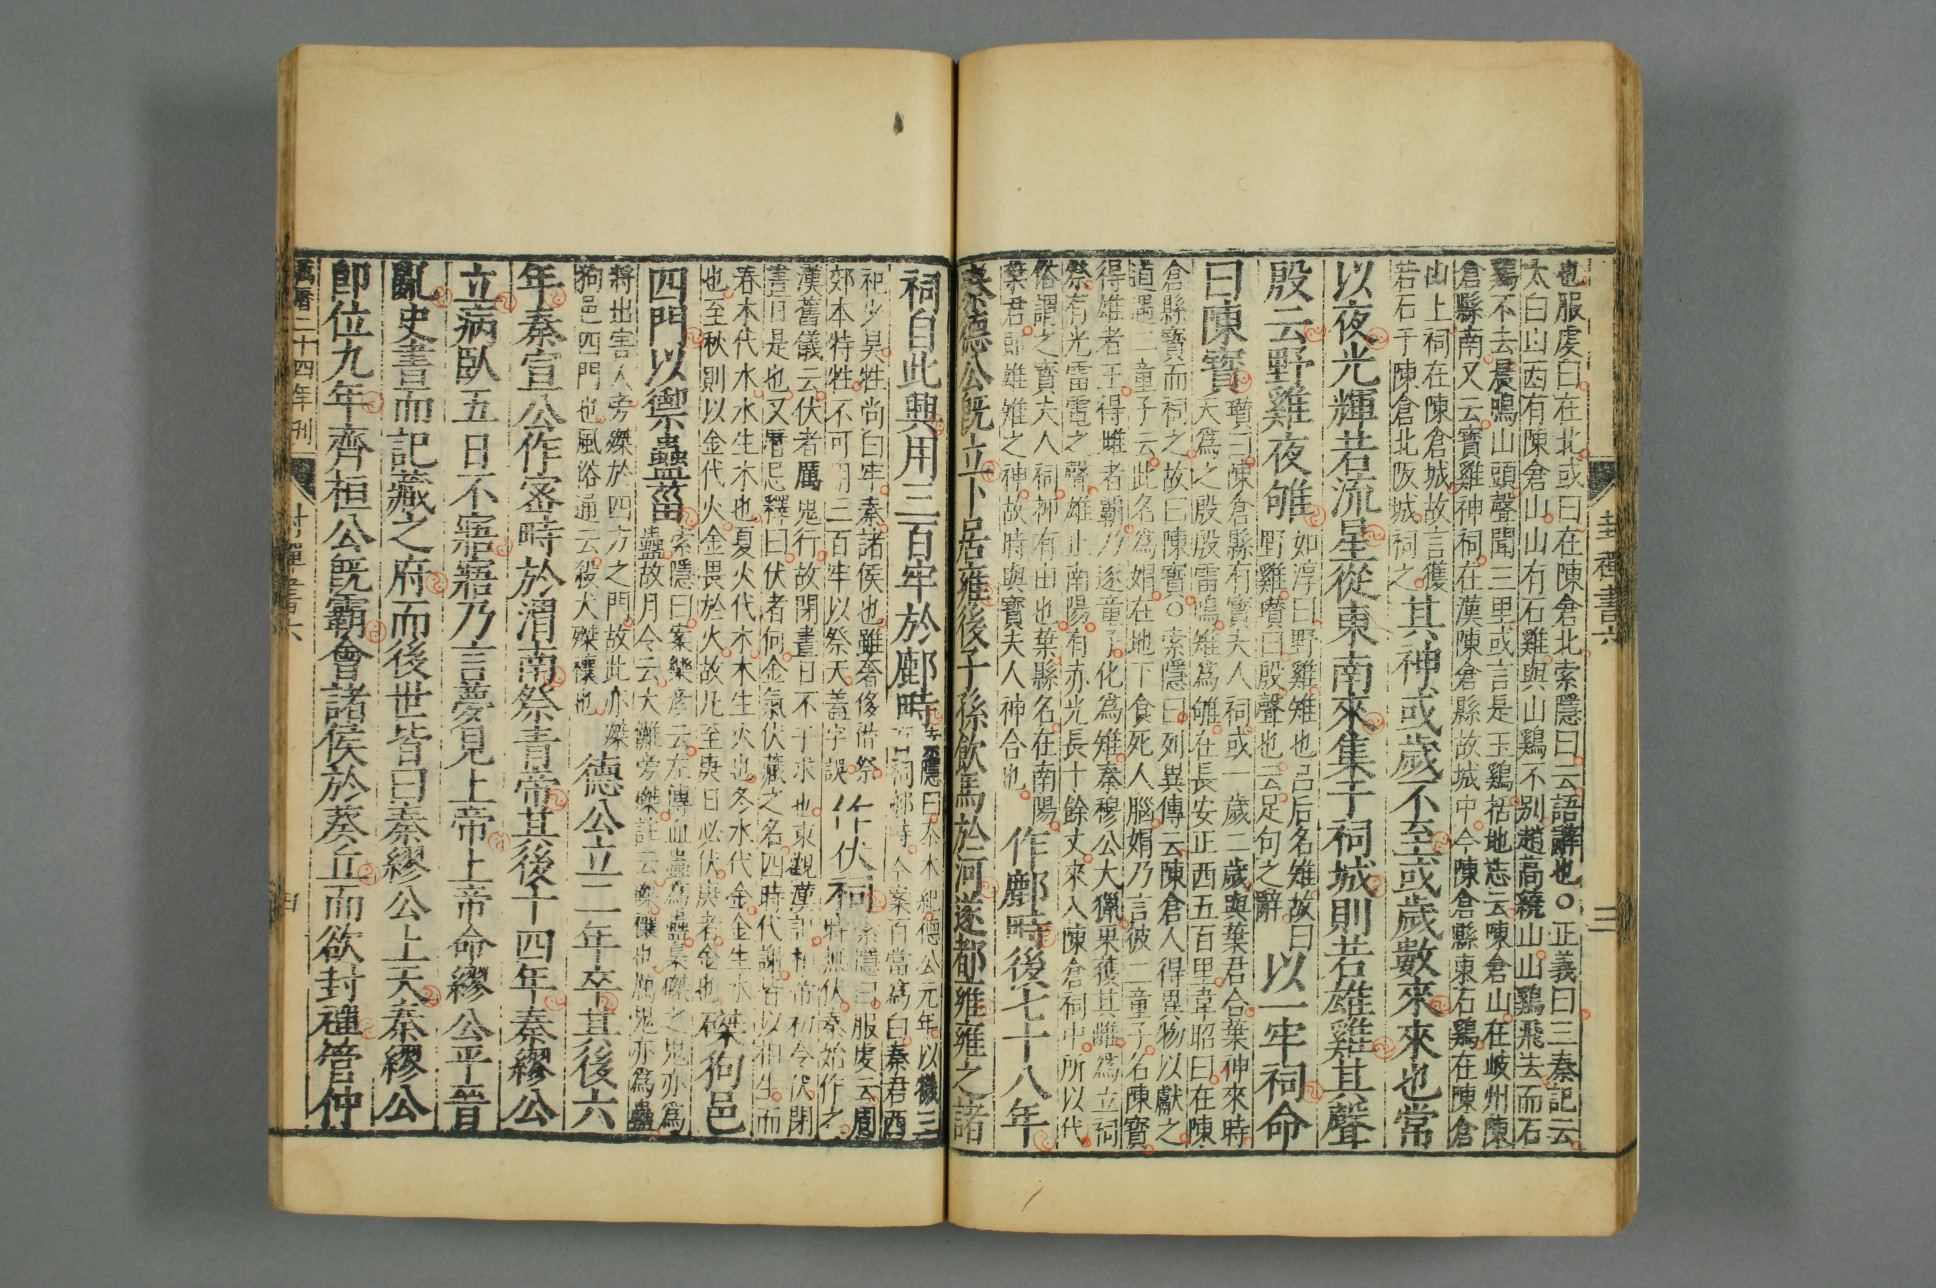 封禪書六
三
也服虔曰在北或曰在陳倉北索隱曰云語辭也○正義曰三秦記云
太白山西有陳倉山山有石雞與山鷄不别趙高燒山山鷄飛去而石
鷄不去晨鳴山頭聲聞三里或言是玉鷄括地志云陳倉山在岐州陳
倉縣南又云寳雞神祠在漢陳倉縣故城中今陳倉縣東石鷄在陳倉
山上祠在陳倉城故言獲
若石于陳倉北阪城祠之
其神或歲不至或歲數來來也常
以夜光輝若流星從東南來集于祠城則若雄雞其聲
殷云野雞夜雊
如淳曰野雞雉也呂后名雉故曰
野雞瓚曰殷聲也云足句之辭
以一牢祠命
曰陳寳
瓚曰陳倉縣有寳夫人祠或一歲二歲與葉君合葉神來時
天爲之殷殷雷鳴雉爲雊在長安正西五百里韋昭曰在陳
倉縣寳而祠之故曰陳寳○索隱曰列異傳云陳倉人得異物以獻之
道遇二童子云此名爲媦在地下食死人腦媦乃言彼二童子名陳寳
得雄者王得雌者霸乃逐童子化爲雉秦穆公大獵果獲其雌爲立祠
祭有光雷電之聲雄止南陽有赤光長十餘丈來入陳倉祠中所以代
俗謂之寳夫人祠神有由也葉縣名在南陽
葉君即雄雉之神故時與寳夫人神合也
作鄜畤後七十八年
秦德公旣立卜居雍後子孫飲馬於河遂都雍雍之諸
祠自此興用三百牢於鄜畤
祀少昊牲尚白牢秦諸侯也雖奢侈僭祭
郊本特牲不可用三百牢以祭天蓋字誤
作伏祠
漢舊儀云伏者厲鬼行故閉晝日不干求也東觀漢記和帝初令伏閉
晝日是也又曆忌釋曰伏者何金氣伏藏之名四時代謝皆以相生而
春木代水水生木也夏火代木木生火也冬水代金金生水
也至秋則以金代火金畏於火故凡至庚日必伏庚者金也
磔狗邑
四門以禦蠱菑
索隱曰案樂彦云左傳皿蟲爲蠱梟磔之鬼亦爲
蠱故月令云大儺旁磔註云磔禳也厲鬼亦爲蠱
將出害人旁磔於四方之門故此亦磔
狗邑四門也風俗通云殺犬磔禳也
德公立二年卒其後六
年秦宣公作宻畤於渭南祭青帝其後十四年秦繆公
立病臥五日不寤寤乃言夢見上帝上帝命繆公平晉
亂史書而記藏之府而後世皆曰秦繆公上天秦繆公
即位九年齊桓公旣霸會諸侯於葵丘而欲封禪管仲
萬曆二十四年刊
封禪書六